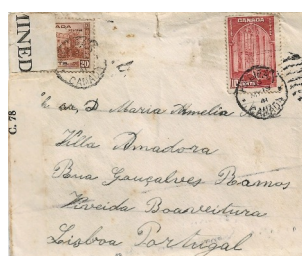 MINED
C. 78
CANADA
20
CANADA
CANADA
10 CENTS
CANADA
Maria Amelia
Villa Amadora
Rua Gonçalves Ramos
Boaventura
Lisboa Portugal